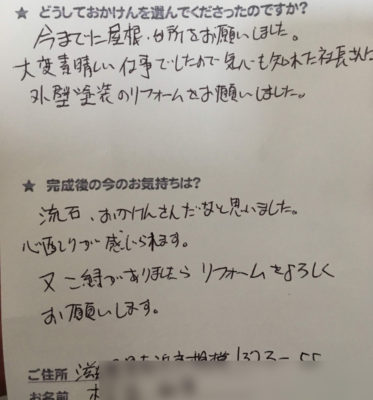 ★ どうしておかけんを選んでくださったのですか?
今までに屋根・台所をお願いしました。
大変素晴しい仕事でしたので気心も知れた社長さんに
外壁塗装のリフォームをお願いしました。
★ 完成後の今のお気持ちは?
流石、おかけんさんだなと思いました。
心配りが感じられます。
又ご縁がありましたら リフォームをよろしく
お願いします。
ご住所 滋
お名前